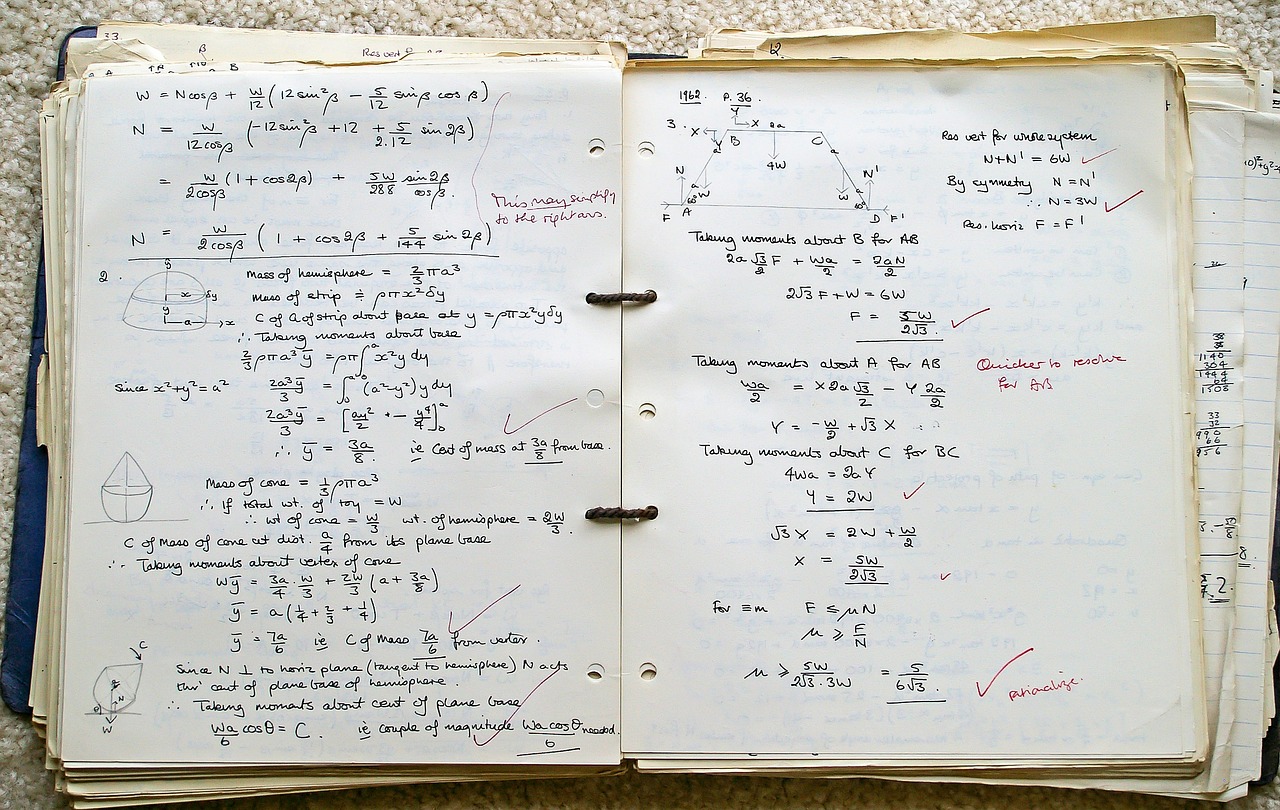 33.
β
Res vert
W = Ncosβ + W/12 (12sin²β − 5/12 sinβ cosβ)
N = W/12cosβ (−12sin²β + 12 + 5/2.12 sin2β)
= W/2cosβ (1 + cos2β) + 5W/288 sin2β/cosβ.
This may simplify
to the right ans.
N = W/2cosβ (1 + cos2β + 5/144 sin2β)
2.
Mass of hemisphere = 2/3 πa³
Mass of strip ≑ ρπx²δy
C of G of strip about base at y = ρπx²yδy
∴ Taking moments about base
2/3 ρπa³ȳ = ρπ∫₀ᵃ x²y dy
Since x²+y²=a² 2a³ȳ/3 = ∫₀ᵃ (a²−y²)y dy
2a³ȳ/3 = [ay²/2 − y⁴/4]₀ᵃ
∴ ȳ = 3a/8 ie Cent of mass at 3a/8 from base.
Mass of cone = 1/3 ρπa³
∴ If total wt. of toy = W
∴ wt of cone = W/3 wt. of hemisphere = 2W/3.
C of Mass of cone at dist. a/4 from its plane base
∴ Taking moments about vertex of cone
Wȳ = 3a/4 . W/3 + 2W/3 (a + 3a/8)
ȳ = a(1/4 + 2/3 + 1/4)
ȳ = 7a/6 ie C of Mass 7a/6 from vertex.
Since N ⊥ to horiz plane (tangent to hemisphere) N acts
thro' cent of plane base of hemisphere.
∴ Taking moments about cent of plane base
Wa/6 cosθ = C. ie couple of magnitude Wa cosθ/6 needed.
C
N
W
12.
1962. P. 36.
3.
Y
X
X
2a
B
C
Y
a
a
4W
N
a
W
W
a
N'
60°
60°
F
A
D
F'
Res vert for whole system
N+N' = 6W
By symmetry N = N'
∴ N = 3W
Res. horiz F = F'
Taking moments about B for AB
2a √3/2 F + Wa/2 = 2aN/2
2√3 F + W = 6W
F = 5W/2√3.
Taking moments about A for AB
Quicker to resolve
for AB
Wa/2 = X 2a √3/2 − Y 2a/2
Y = −W/2 + √3 X
Taking moments about C for BC
4Wa = 2aY
Y = 2W
√3 X = 2W + W/2
X = 5W/2√3
For ≡m F ≤ μN
μ ≥ F/N
μ ≥ 5W/2√3.3W = 5/6√3.
rationalize.
38
38
1140
304
1444
64
1508
33
32
990
66
956